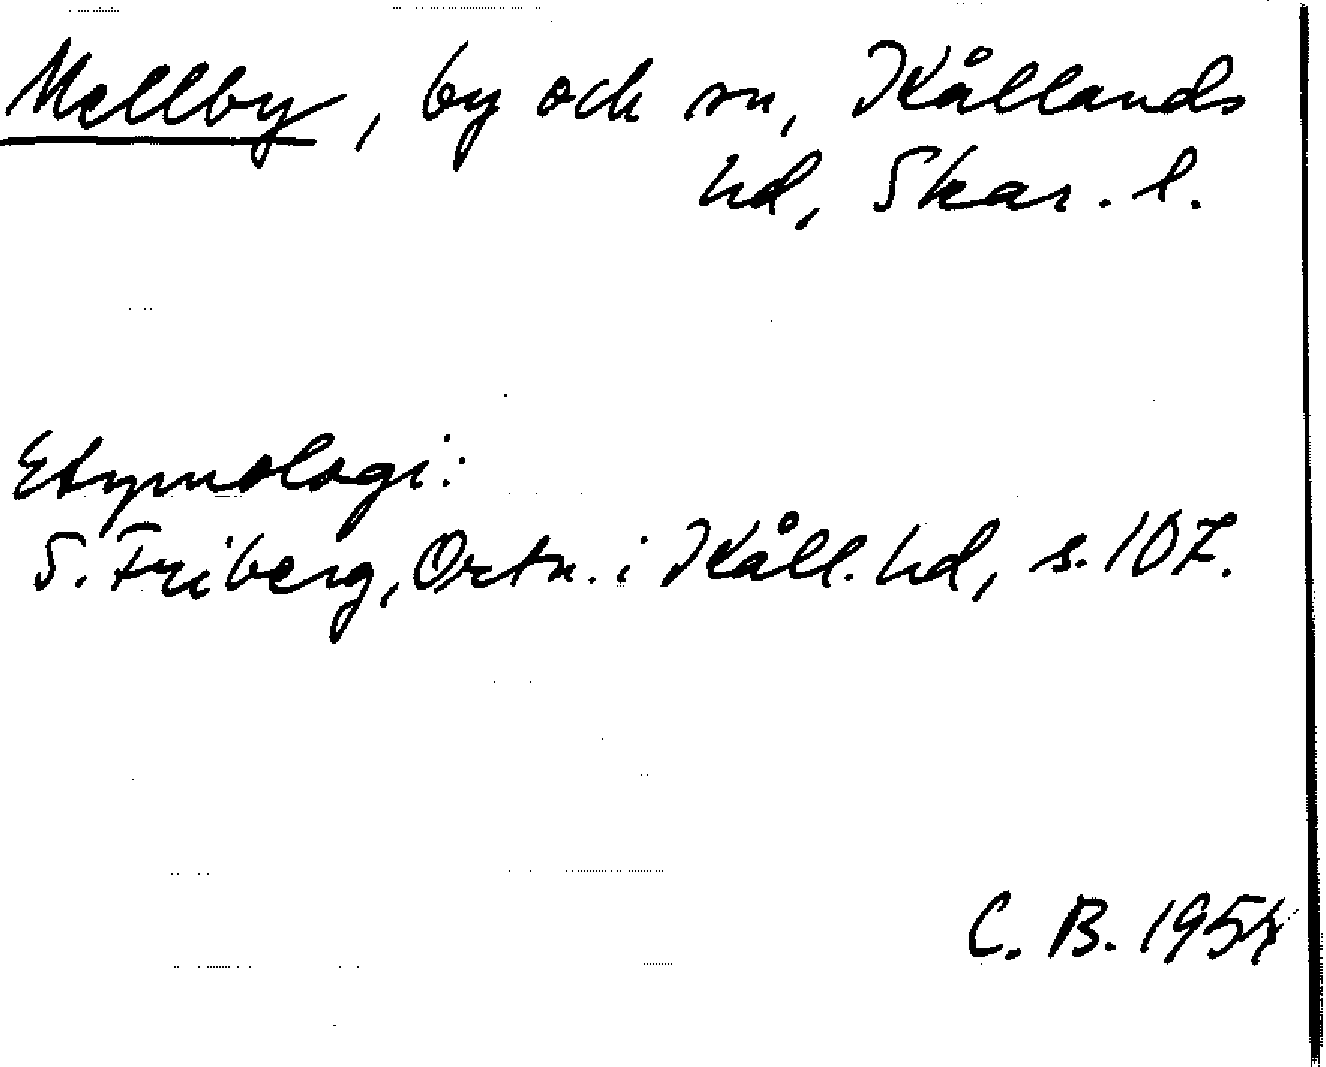 Mellby, by och sn, Kållands
hd, Skar. l.
Etymologi:
S. Friberg, Ortn. i Kåll. hd, s. 107.
C. B. 1954